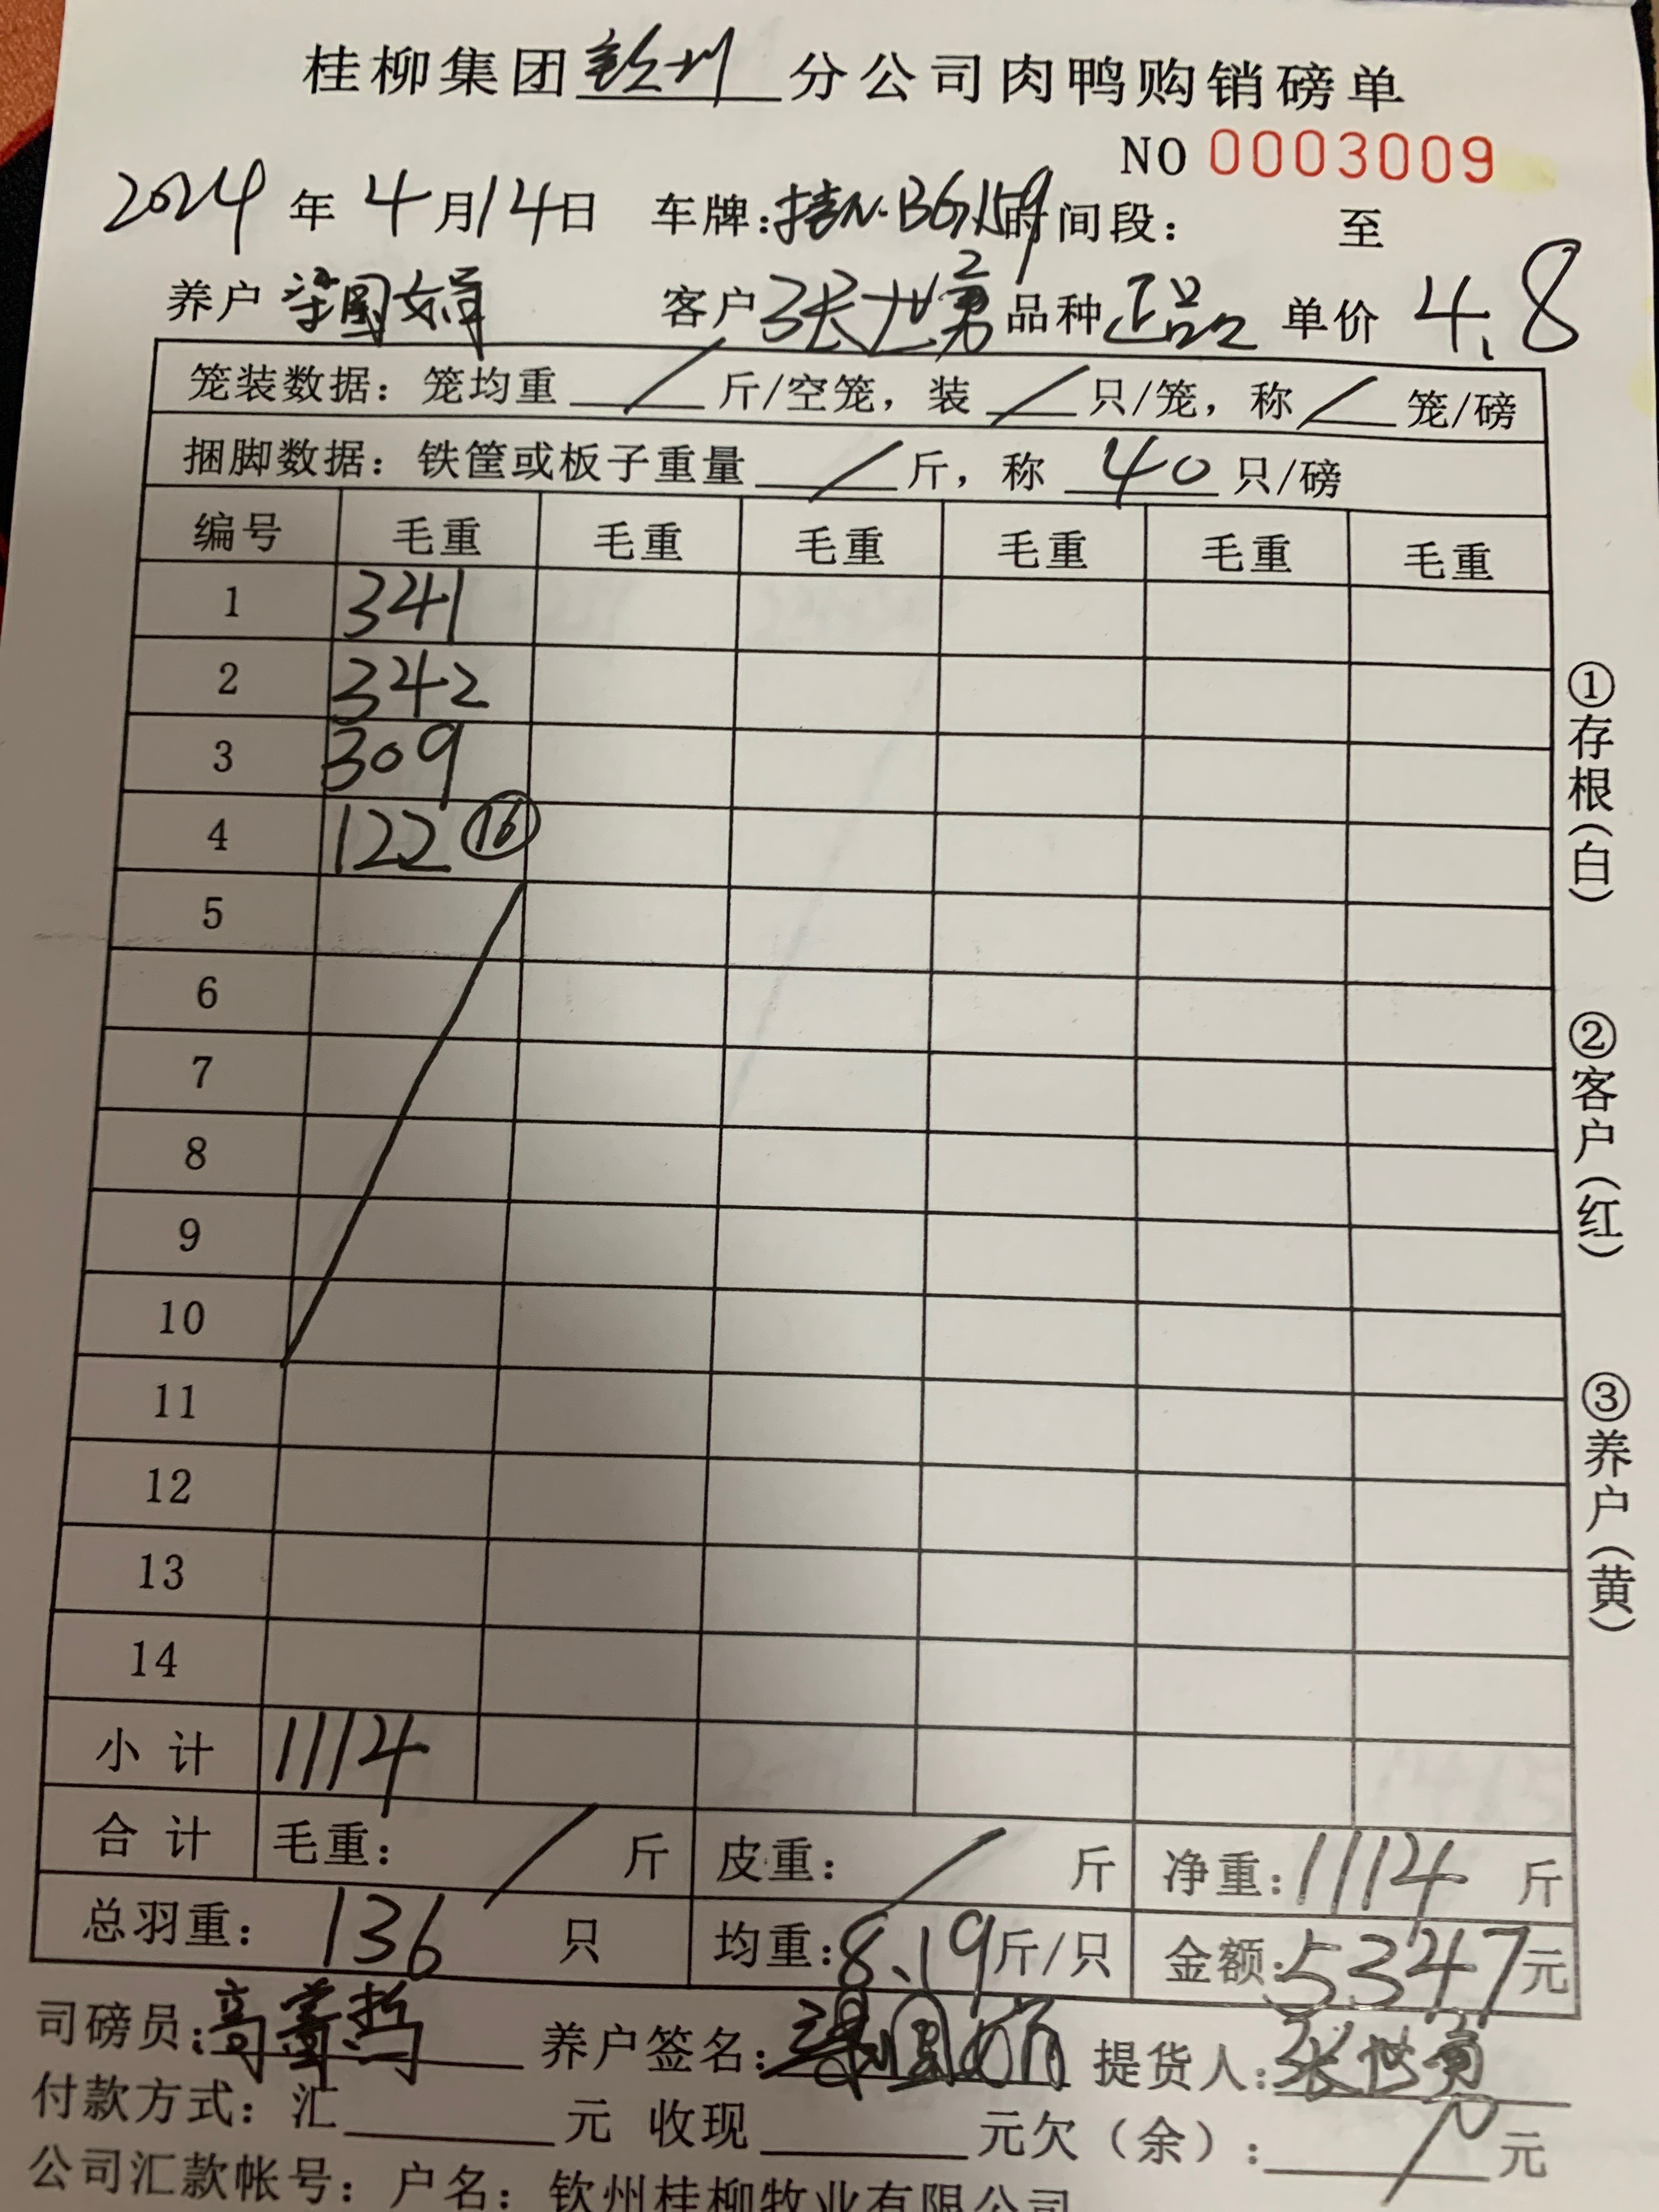 桂柳集团钦州分公司肉鸭购销磅单
NO 0003009
2024年4月14日 车牌:桂N·B6159 时间段: 至
养户 梁国娟 客户 张世勇 品种 正品 单价 4.8
笼装数据:笼均重 / 斤/空笼,装 / 只/笼,称 / 笼/磅
捆脚数据:铁筐或板子重量 / 斤,称 40 只/磅
编号 毛重 毛重 毛重 毛重 毛重 毛重
1 341
2 342
3 309
4 122 ⑯
5
6
7
8
9
10
11
12
13
14
小计 1114
合计 毛重: / 斤 皮重: / 斤 净重:1114 斤
总羽重: 136 只 均重:8.19斤/只 金额:5347元
司磅员: 养户签名:梁国娟 提货人:张世勇
付款方式:汇 元 收现 元欠(余): 元
公司汇款帐号:户名:钦州桂柳牧业有限公司
①存根(白)
②客户(红)
③养户(黄)